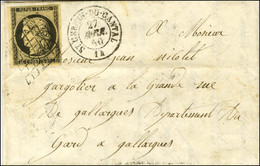 REPUB. FRANC.
ST-CERNIN-DU-CANTAL
27
14
A Monsieur
Monsieur jean
gargotier a la Grande rue
De gallargues Departement Du
Gard a gallargues